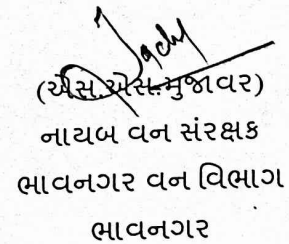 (એસ.એસ.મુજાવર)
નાયબ વન સંરક્ષક
ભાવનગર વન વિભાગ
ભાવનગર